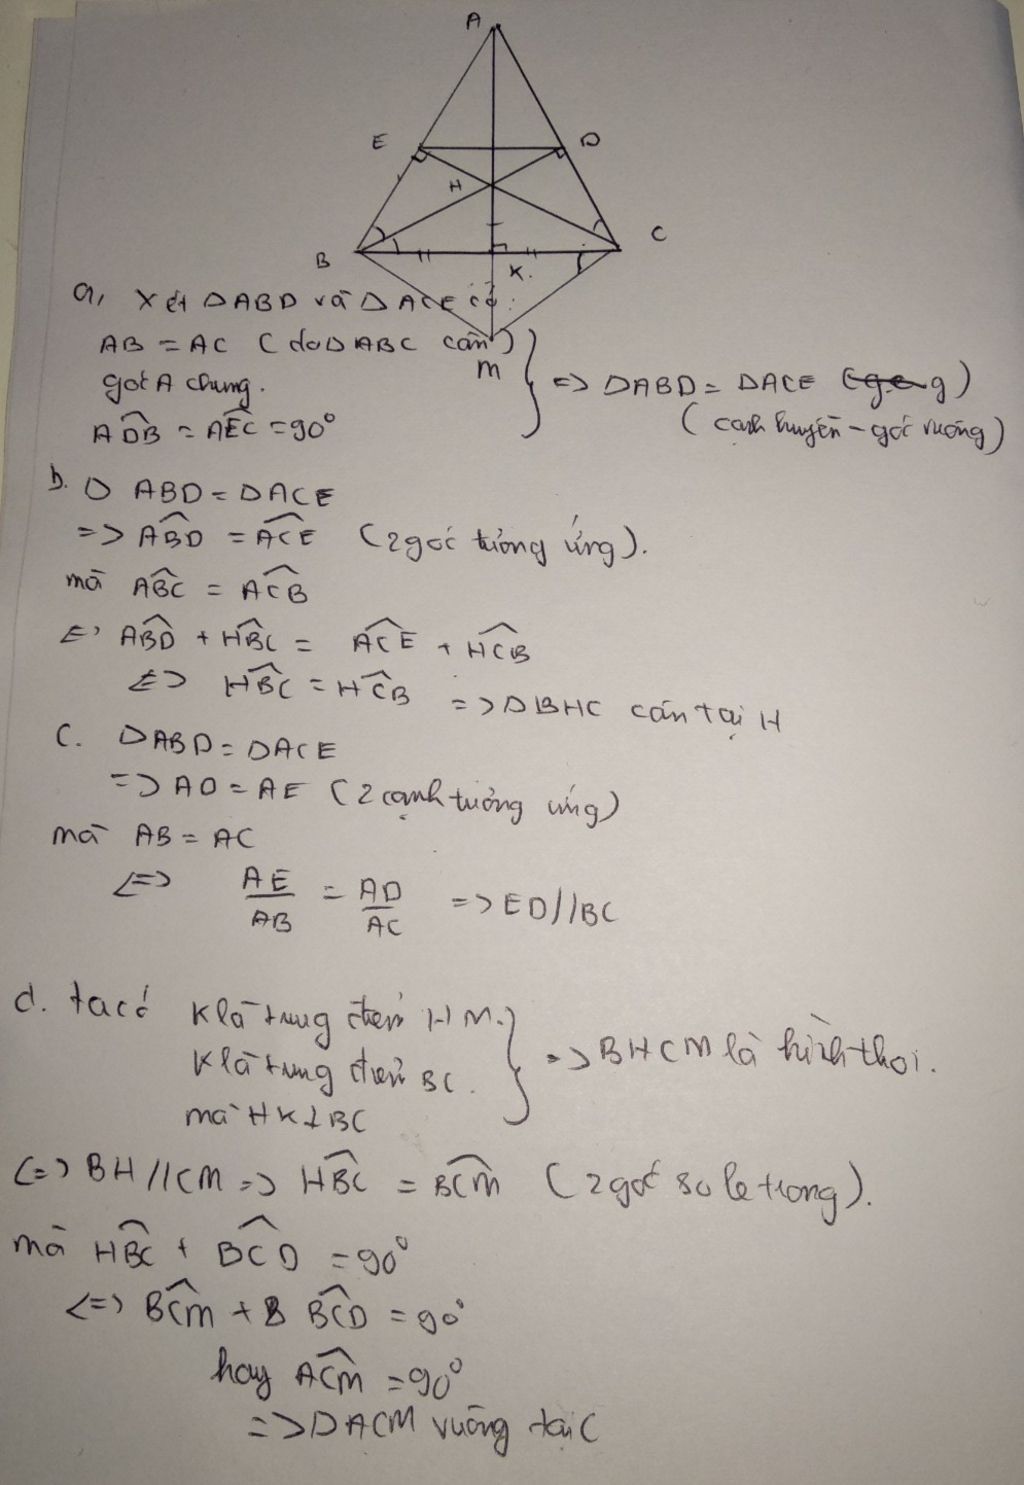 A
E
D
H
B
C
K.
a, Xét ΔABD và ΔACE có:
AB = AC (do ΔABC cân)
góc A chung.
ADB = AEC = 90°
M
=> ΔABD = ΔACE
(cạnh huyền - góc vuông)
b. Δ ABD = ΔACE
=> ABD = ACE (2 góc tương ứng).
mà ABC = ACB
ABD + HBC = ACE + HCB
<=> HBC = HCB => ΔBHC cân tại H
c. ΔABD = ΔACE
=> AD = AE (2 cạnh tương ứng)
mà AB = AC
<=> AE/AB = AD/AC => ED//BC
d. ta có K là trung điểm HM.
K là trung điểm BC.
mà HK ⊥ BC
=> BHCM là hình thoi.
<=> BH//CM => HBC = BCM (2 góc so le trong).
mà HBC + BCD = 90°
<=> BCM + BCD = 90°
hay ACM = 90°
=> ΔACM vuông tại C